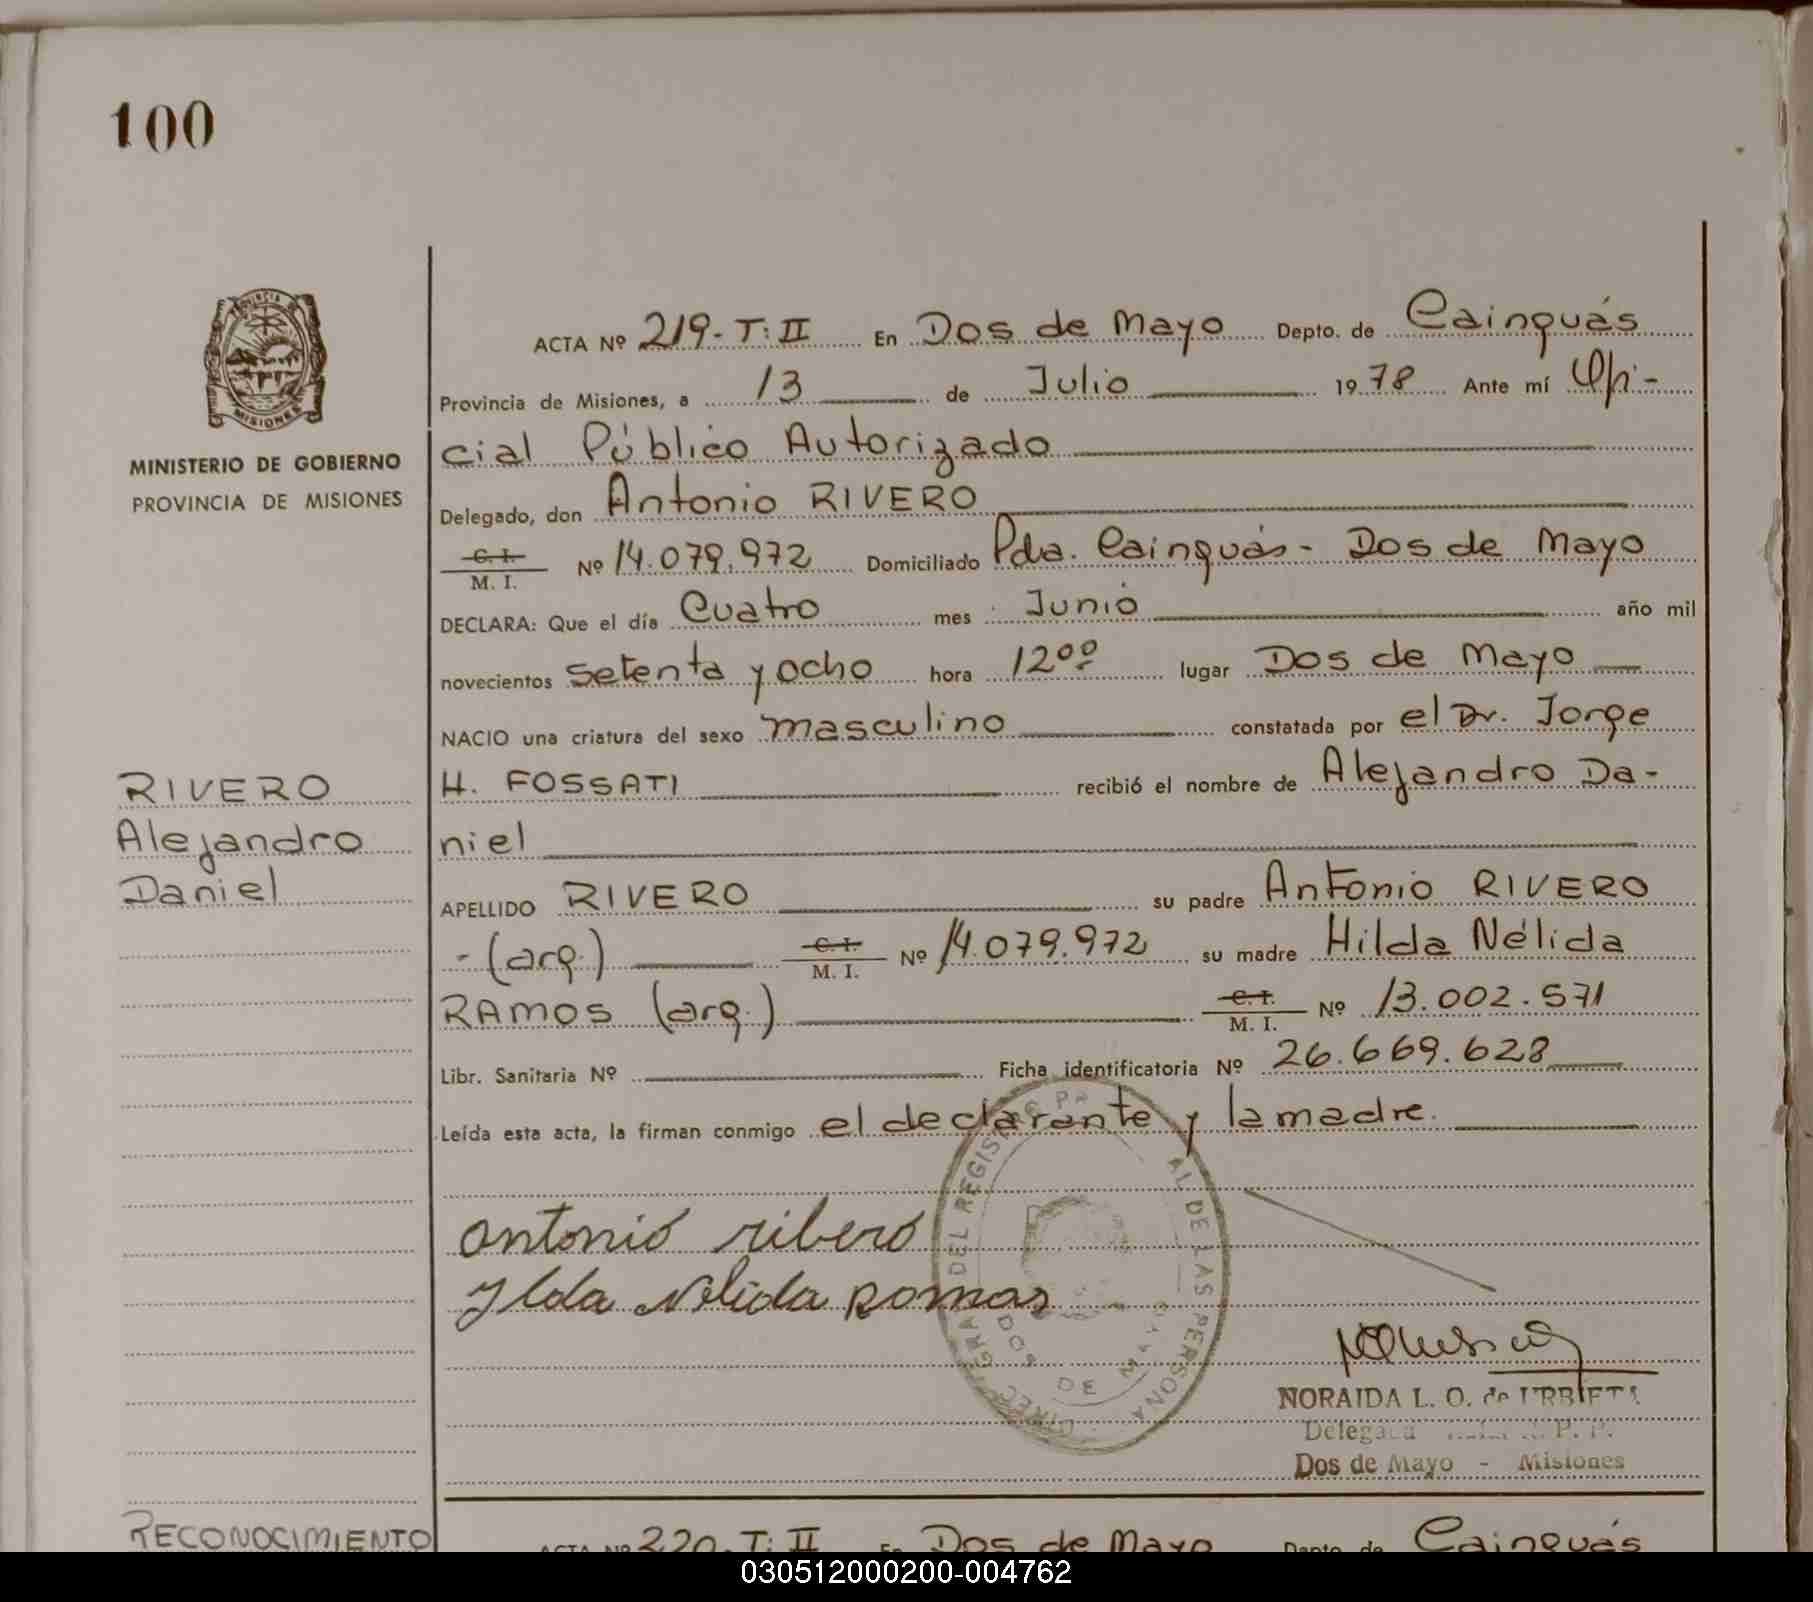 100
PROVINCIA DE
MISIONES
MINISTERIO DE GOBIERNO
PROVINCIA DE MISIONES
ACTA Nº 219-T:II En Dos de Mayo Depto. de Cainguás
Provincia de Misiones, a 13 de Julio 1978 Ante mí Ofi-
cial Público Autorizado
Delegado, don Antonio RIVERO
C. I. M. I. Nº 14.079.972 Domiciliado Pda. Cainguás - Dos de Mayo
DECLARA: Que el día Cuatro mes Junio año mil
novecientos setenta y ocho hora 12ºº lugar Dos de Mayo
NACIO una criatura del sexo masculino constatada por el Dr. Jorge
H. FOSSATI recibió el nombre de Alejandro Da-
niel
APELLIDO RIVERO su padre Antonio RIVERO
- (arg.) C. I. M. I. Nº 14.079.972 su madre Hilda Nélida
RAMOS (arg.) C. I. M. I. Nº 13.002.571
Libr. Sanitaria Nº Ficha identificatoria Nº 26.669.628
Leída esta acta, la firman conmigo el declarante y la madre.
RIVERO
Alejandro
Daniel
antonio ribero
Ylda nelida romas
DEL REGIS AL DE LAS PERSONA
DOS DE MAYO
NORAIDA L. O. de URBIETA
Delegada P. P.
Dos de Mayo - Misiones
RECONOCIMIENTO
ACTA Nº 220-T:II En Dos de Mayo Depto. de Cainguás
030512000200-004762